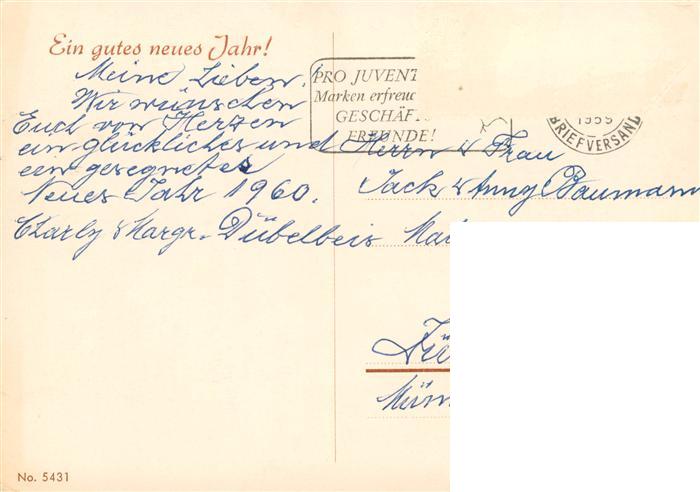 Ein gutes neues Jahr!
Meine Lieben!
Wir wünschen
Euch von Herzen
ein glückliches und
ein gesegnetes
Neues Jahr 1960.
Charly & Margr. Dübelbeis
PRO JUVENT
Marken erfreuc
GESCHÄF
FREUNDE!
1959
BRIEFVERSAND
Herrn & Frau
Jack & Anny Baumann
No. 5431